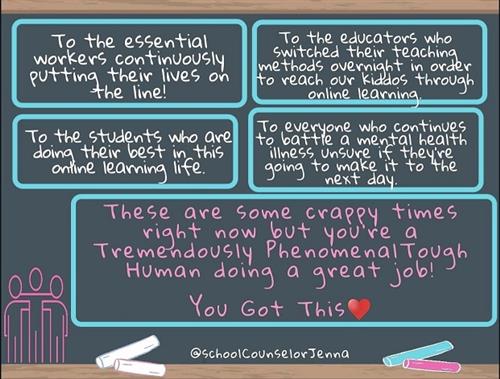 To the essential
workers continuously
putting their lives on
the line!
To the educators who
switched their teaching
methods overnight in order
to reach our kiddos through
online learning.
To the students who are
doing their best in this
online learning life.
To everyone who continues
to battle a mental health
illness unsure if they're
going to make it to the
next day.
These are some crappy times
right now but you're a
Tremendously Phenomenal Tough
Human doing a great job!
You Got This
@schoolCounselorJenna